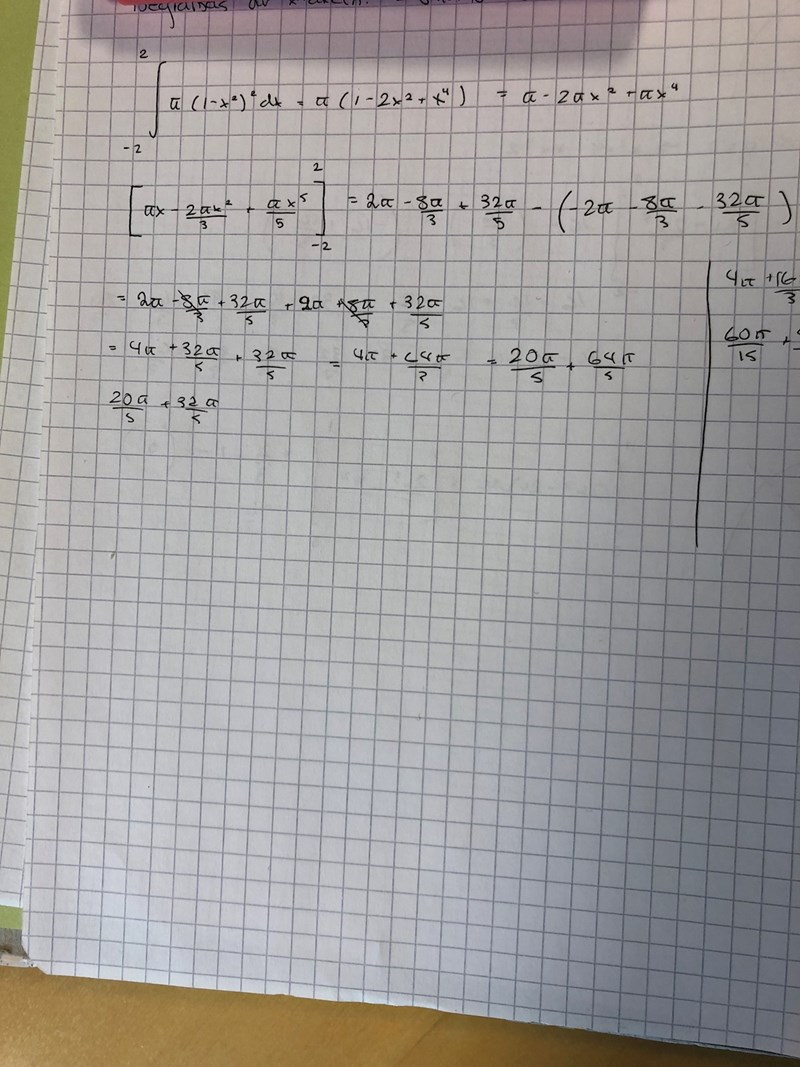 begränsas av x-axeln.
2
∫ π(1-x²)² dx = π(1-2x²+x⁴) = π - 2πx² + πx⁴
-2
[πx - 2πx²/3 + πx⁵/5]²₋₂ = 2π - 8π/3 + 32π/5 - (-2π - 8π/3 - 32π/5)
= 2π - 8π/3 + 32π/5 + 2π + 8π/3 + 32π/5
= 4π + 32π/5 + 32π/5 = 4π + 64π/5 = 20π/5 + 64π/5
20π/5 + 32π/5
4π + 16/3
60π/15 +